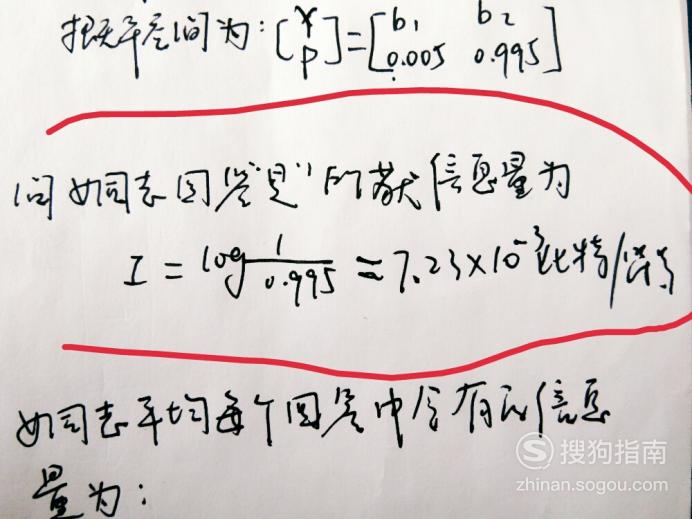 概率空间为：[Y P]=[b₁ b₂ 0.005 0.995]
问女同志回答"是"所获信息量为
I = log 1/0.995 = 7.23×10⁻³比特/符号
女同志平均每个回答中含有的信息
量为：
搜狗指南
zhinan.sogou.com